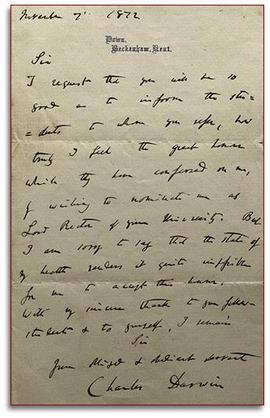 November 7th 1872
Down,
Beckenham, Kent.
Sir
I request that you will be so
good as to inform the stu=
=dents to whom you refer, how
truly I feel the great honour
which they have conferred on me,
by wishing to nominate me as
Lord Rector of your University. But
I am sorry to say that the state of
my health renders it quite impossible
for me to accept this honour,
With my sincere thanks to your fellow
students & to yourself, I remain
Sir
your obliged & obedient servant
Charles Darwin